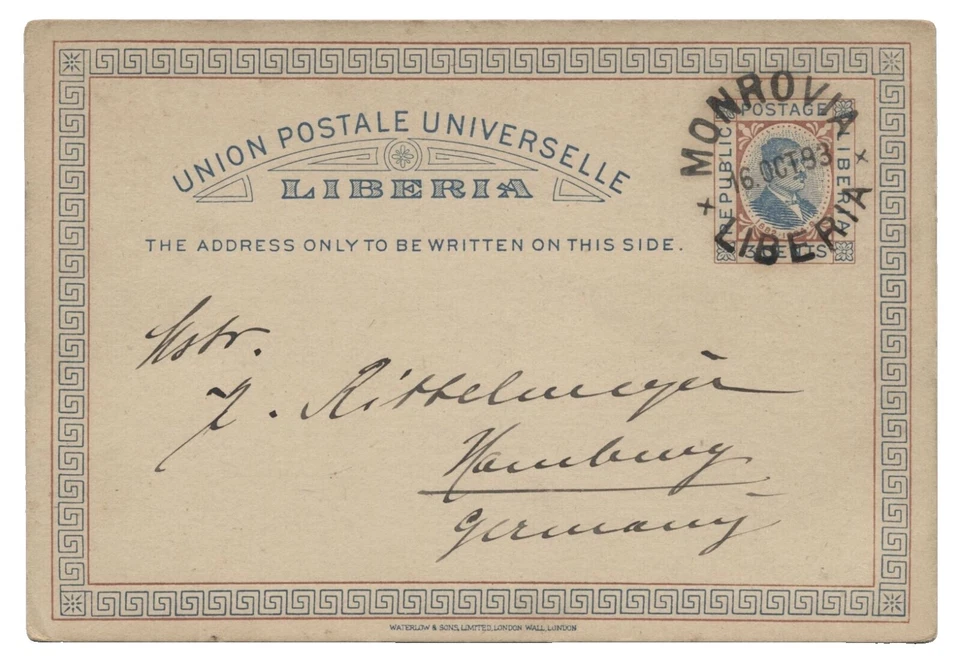 UNION POSTALE UNIVERSELLE
LIBERIA
THE ADDRESS ONLY TO BE WRITTEN ON THIS SIDE.
POSTAGE
REPUBLIC OF
LIBERIA
3 CENTS
MONROVIA
16.OCT.93
LIBERIA
Mstr.
J. Rittelmeyer
Hamburg
Germany
WATERLOW & SONS, LIMITED, LONDON WALL, LONDON